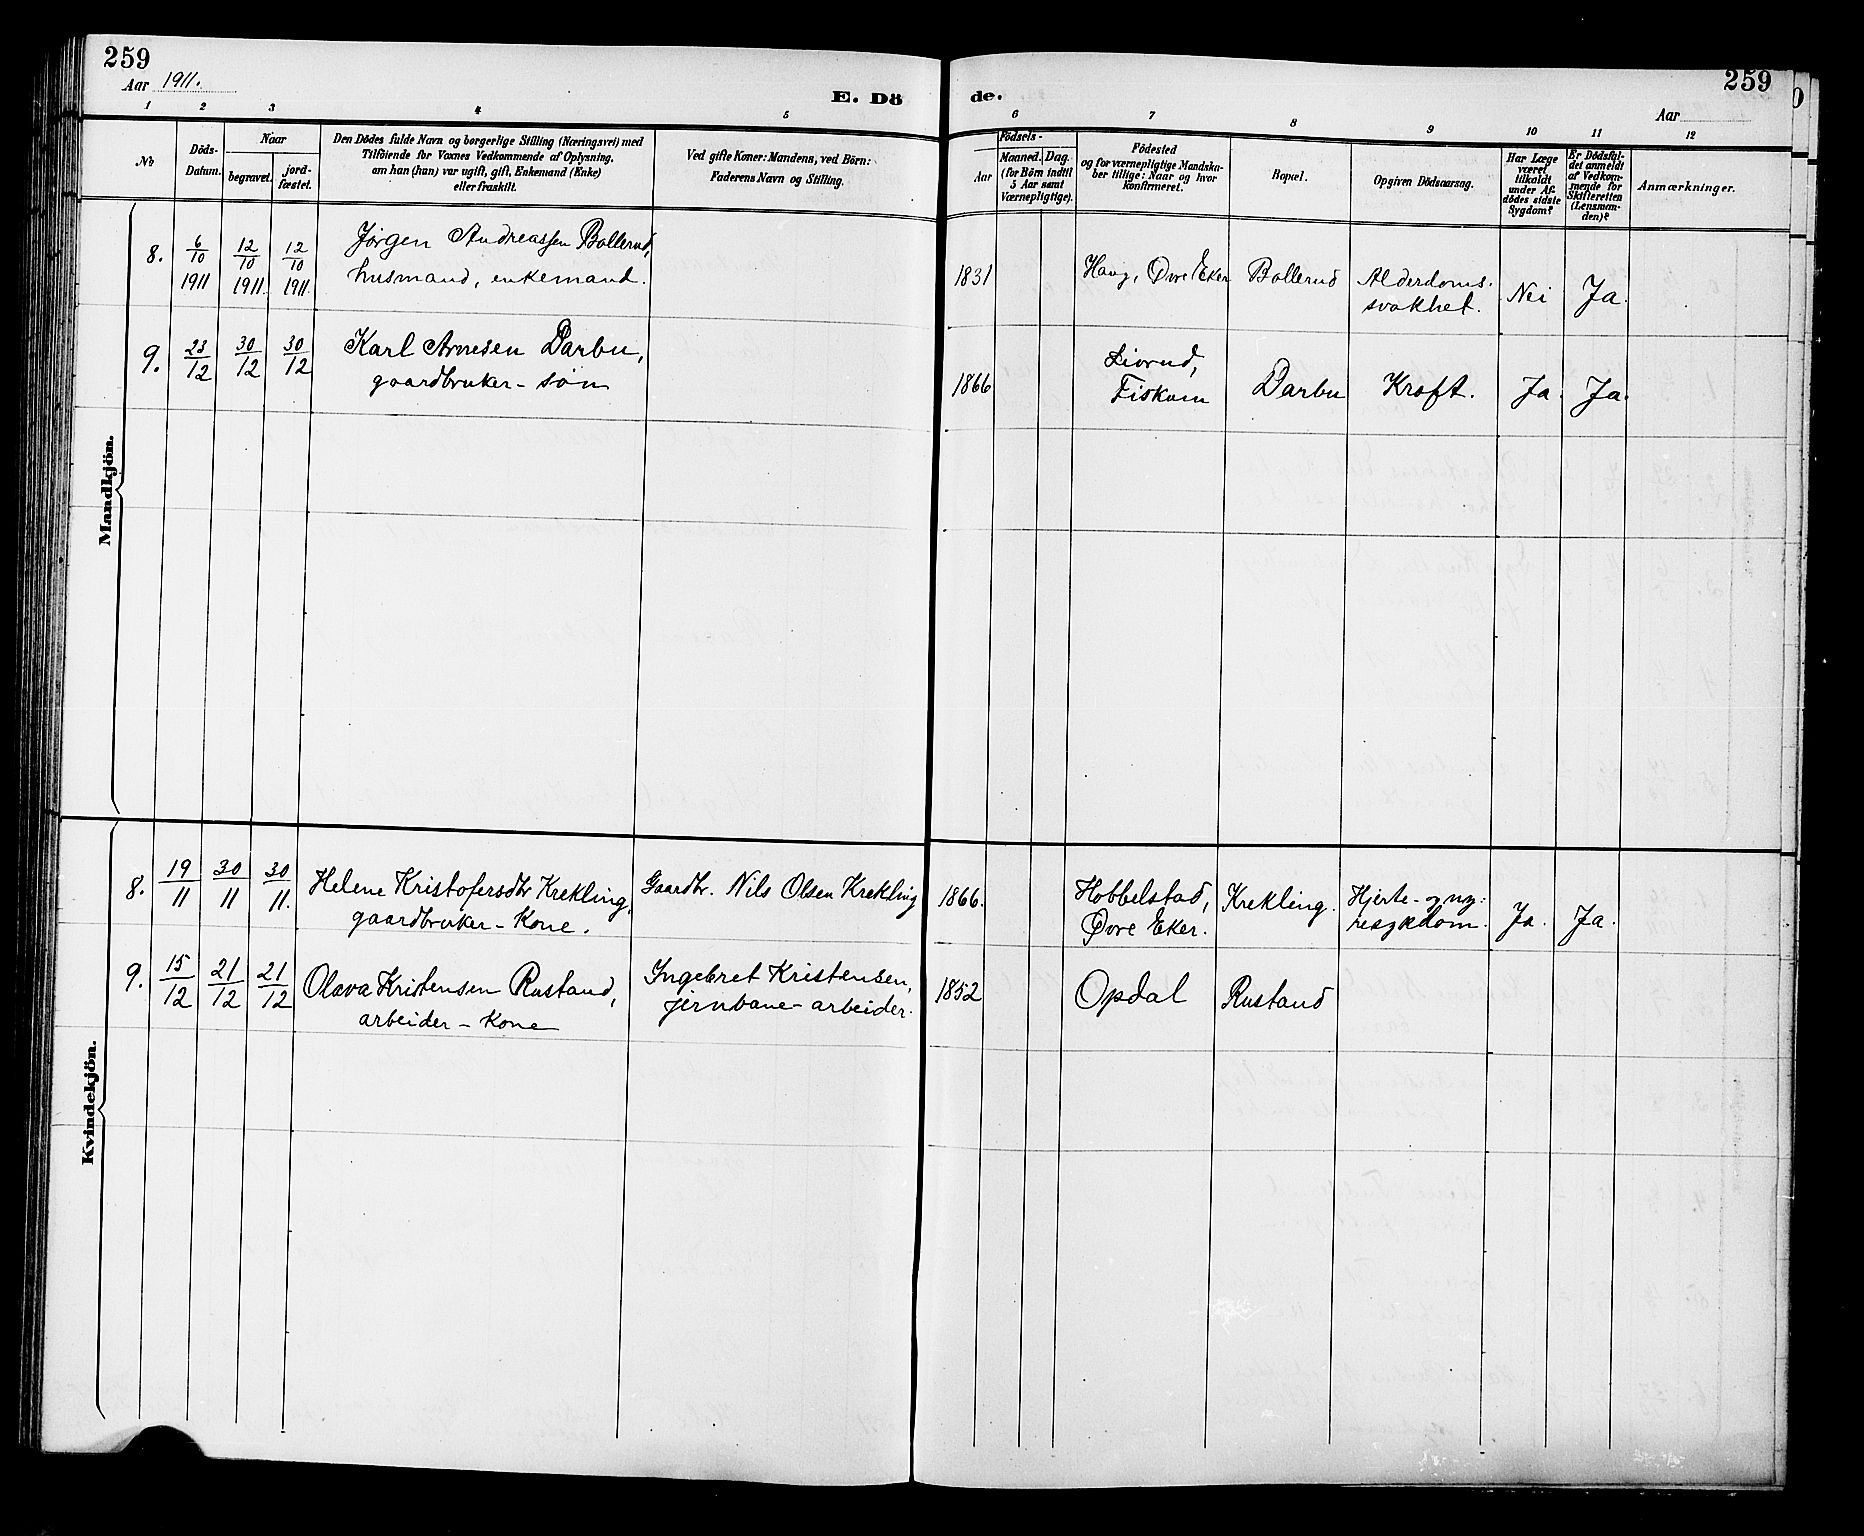 259
Aar 1911.
E. Dö
de.
259
Aar
1 2 3 4 5 6 7 8 9 10 11 12
No
Döds-
Datum.
Naar
begravet.
jord-
fæstet.
Den Dödes fulde Navn og borgerlige Stilling (Næringsvei) med
Tilföiende for Voxnes Vedkommende af Oplysning,
om han (hun) var ugift, gift, Enkemand (Enke)
eller fraskilt.
Ved gifte Koner: Mandens, ved Börn:
Faderens Navn og Stilling.
Födsels-
Aar
Maaned. Dag.
(for Börn indtil
5 Aar samt
Værnepligtige).
Födested
og for værnepligtige Mandska-
ber tillige: Naar og hvor
konfirmeret.
Bopæl.
Opgiven Dödsaarsag.
Har Læge
været
tilkaldt
under Af-
dödes sidste
Sygdom?
Er Dödsfal-
det anmeldt
af Vedkom-
mende for
Skifteretten
(Lensman-
den)?
Anmærkninger.
Mandkjön.
8. 6/10 1911 12/10 1911. 12/10 1911. Jørgen Andreassen Bollerud,
husmand, enkemand.
1831 Haug, Øvre Eker Bollerud Alderdoms-
svakhet. Nei Ja.
9. 23/12 30/12 30/12 Karl Arnesen Darbu,
gaardbruker-søn
1866 Fiskum Darbu Kræft. Ja. Ja.
Kvindekjön.
8. 19/11 30/11 30/11. Helene Kristofersdtr Krekling, Gaardbr. Nils Olsen Krekling
gaardbruker-Kone.
1866. Hobbelstad,
Øvre Eker. Krekling. Hjerte- og ny-
resykdom. Ja. Ja.
9. 15/12 21/12 21/12 Olava Kristensen Rustand, Ingebret Kristensen,
arbeider-Kone jernbane-arbeider.
1852 Opdal Rustand